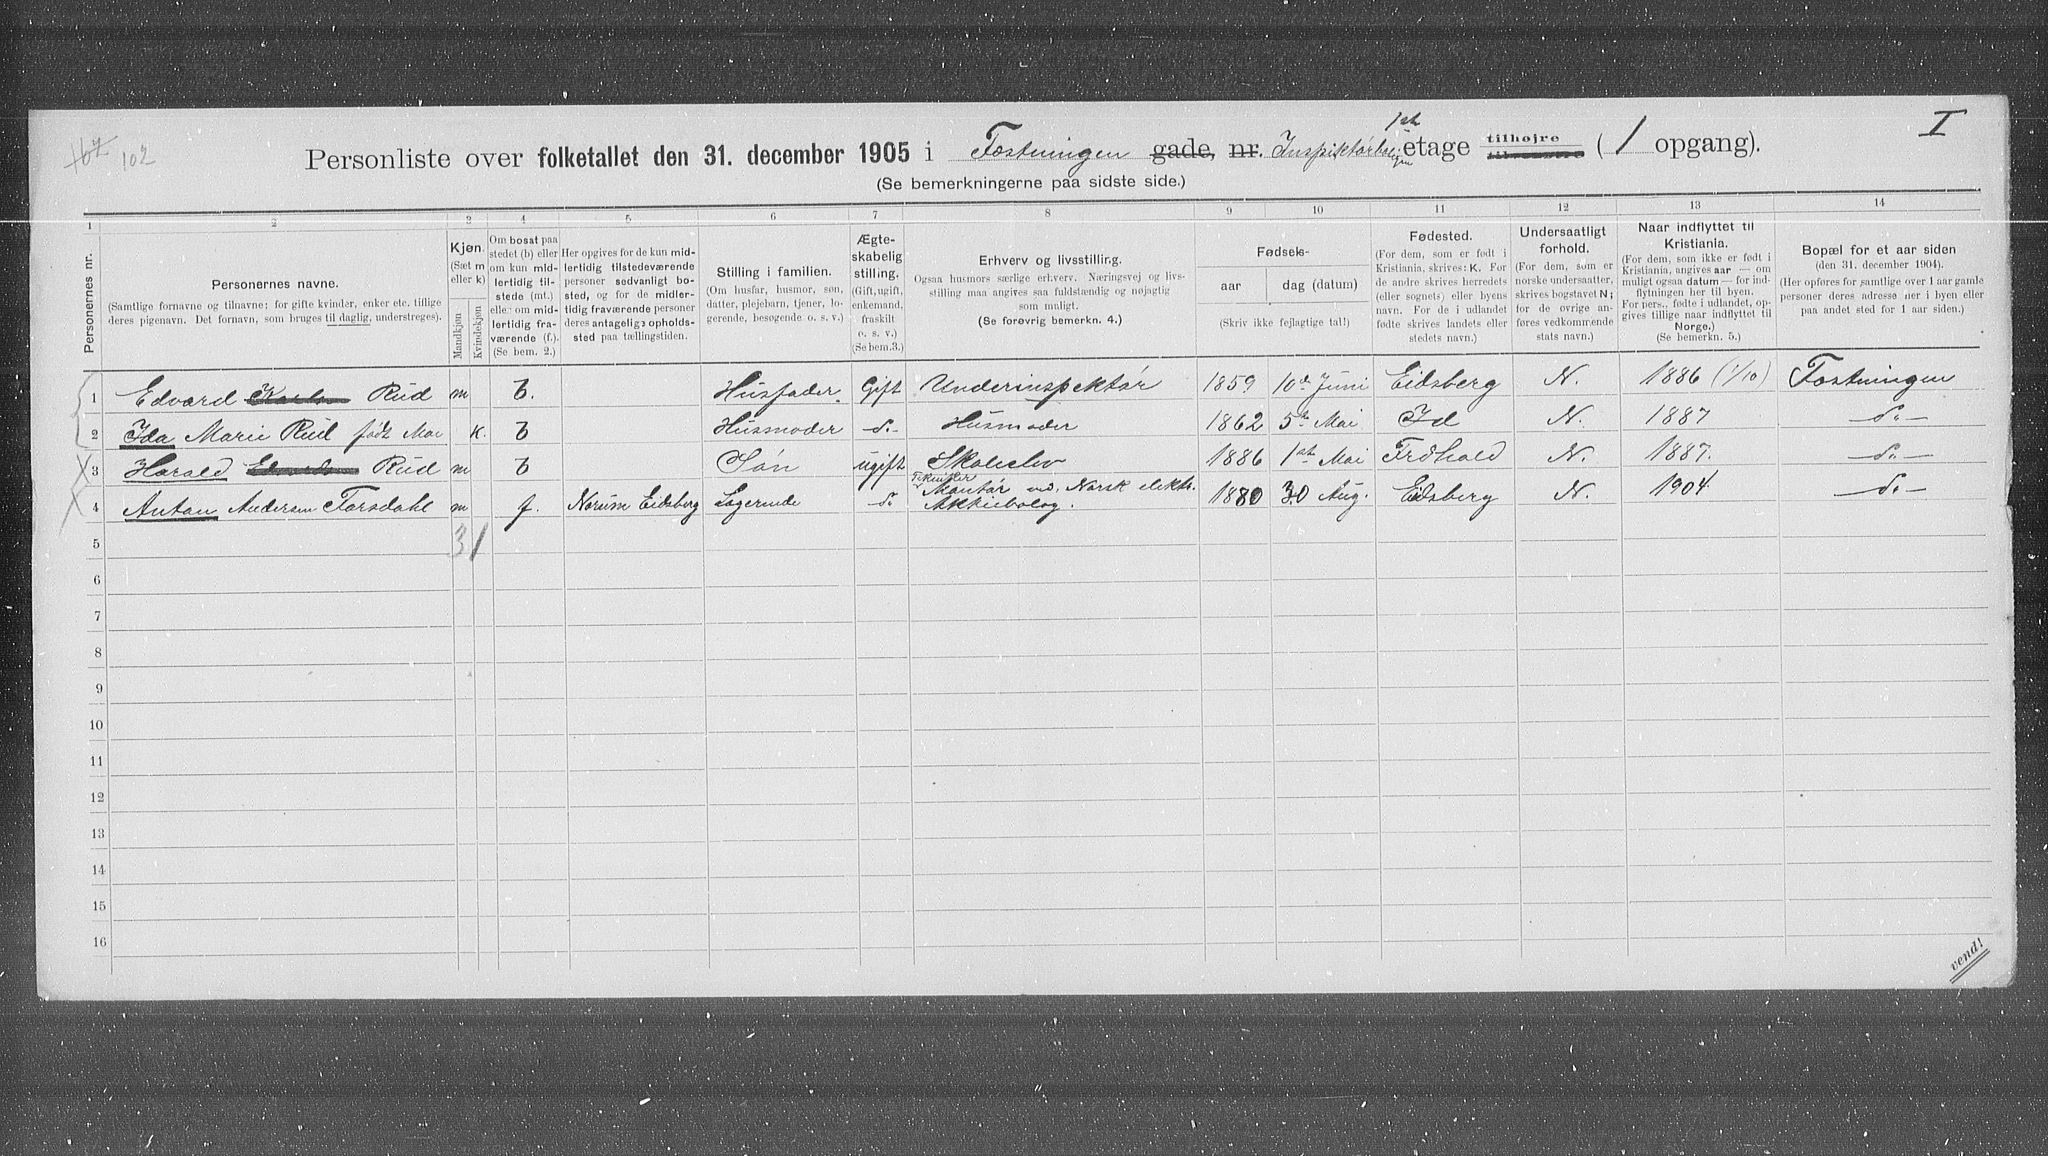 I
102 102
Personliste over folketallet den 31. december 1905 i Fæstningen gade, nr. Inspektørboligen 1ste etage tilhøjre ( 1 opgang).
(Se bemerkningerne paa sidste side.)
1 2 3 4 5 6 7 8 9 10 11 12 13 14
Personernes nr.
Personernes navne.
(Samtlige fornavne og tilnavne; for gifte kvinder, enker etc. tillige
deres pigenavn. Det fornavn, som bruges til daglig, understreges).
Kjøn.
(Sæt m
eller k)
Mandkjøn
Kvindekjøn
Om bosat paa
stedet (b) eller
om kun mid-
lertidig til-
stede (mt.)
eller om mid-
lertidig fra-
værende (f.).
(Se bem. 2.)
Her opgives for de kun mid-
lertidig tilstedeværende
personer sedvanlig bo-
sted, og for de midler-
tidig fraværende personer
deres antagelige opholds-
sted paa tællingstiden.
Stilling i familien.
(Om husfar, husmor, søn,
datter, plejebarn, tjener, lo-
gerende, besøgende o. s. v.)
Ægte-
skabelig
stilling.
(Gift, ugift,
enkemand,
fraskilt
o. s. v.)
(Se bem.3.)
Erhverv og livsstilling.
Ogsaa husmors særlige erhverv. Næringsvej og livs-
stilling maa angives saa fuldstændig og nøjagtig
som muligt.
(Se forøvrig bemerkn. 4.)
Fødsels-
aar dag (datum)
(Skriv ikke fejlagtige tal!)
Fødested.
(For dem, som er født i
Kristiania, skrives: K. For
de andre skrives herredets
(eller sognets) eller byens
navn. For de i udlandet
fødte skrives landets eller
stedets navn.)
Undersaatligt
forhold.
(For dem, som er
norske undersaatter,
skrives bogstavet N;
for de øvrige an-
føres vedkommende
stats navn.)
Naar indflyttet til
Kristiania.
(For dem, som ikke er født i
Kristiania, angives aar — om
muligt ogsaa datum — for ind-
flytningen her til byen.
For pers. fødte i udlandet, op-
gives tillige naar indflyttet til
Norge.)
(Se bemerkn. 5.)
Bopæl for et aar siden
(den 31. december 1904).
(Her opføres for samtlige over 1 aar gamle
personer deres adresse her i byen eller
paa andet sted for 1 aar siden.)
1 Edvard Rud m b. Husfader. Gift Underinspektør 1859 10de Juni Eidsberg N. 1886 (1/10) Fæstningen
2 Ida Marie Rud født Moe k. b Husmoder d.- Husmoder 1862 5te Mai Id N. 1887 d.-
3 Harald Rud m b Søn ugift Skoleelev 1886 1ste Mai Frdhald N. 1887. d.-
4 Anton Andersen Forsdahl m f. Norum Eidsberg Logerende d. Montør ved Norsk elektr. 1880 30 Aug. Eidsberg N. 1904 d.-
Aktiebolag.
3 1
5
6
7
8
9
10
11
12
13
14
15
16
vend!